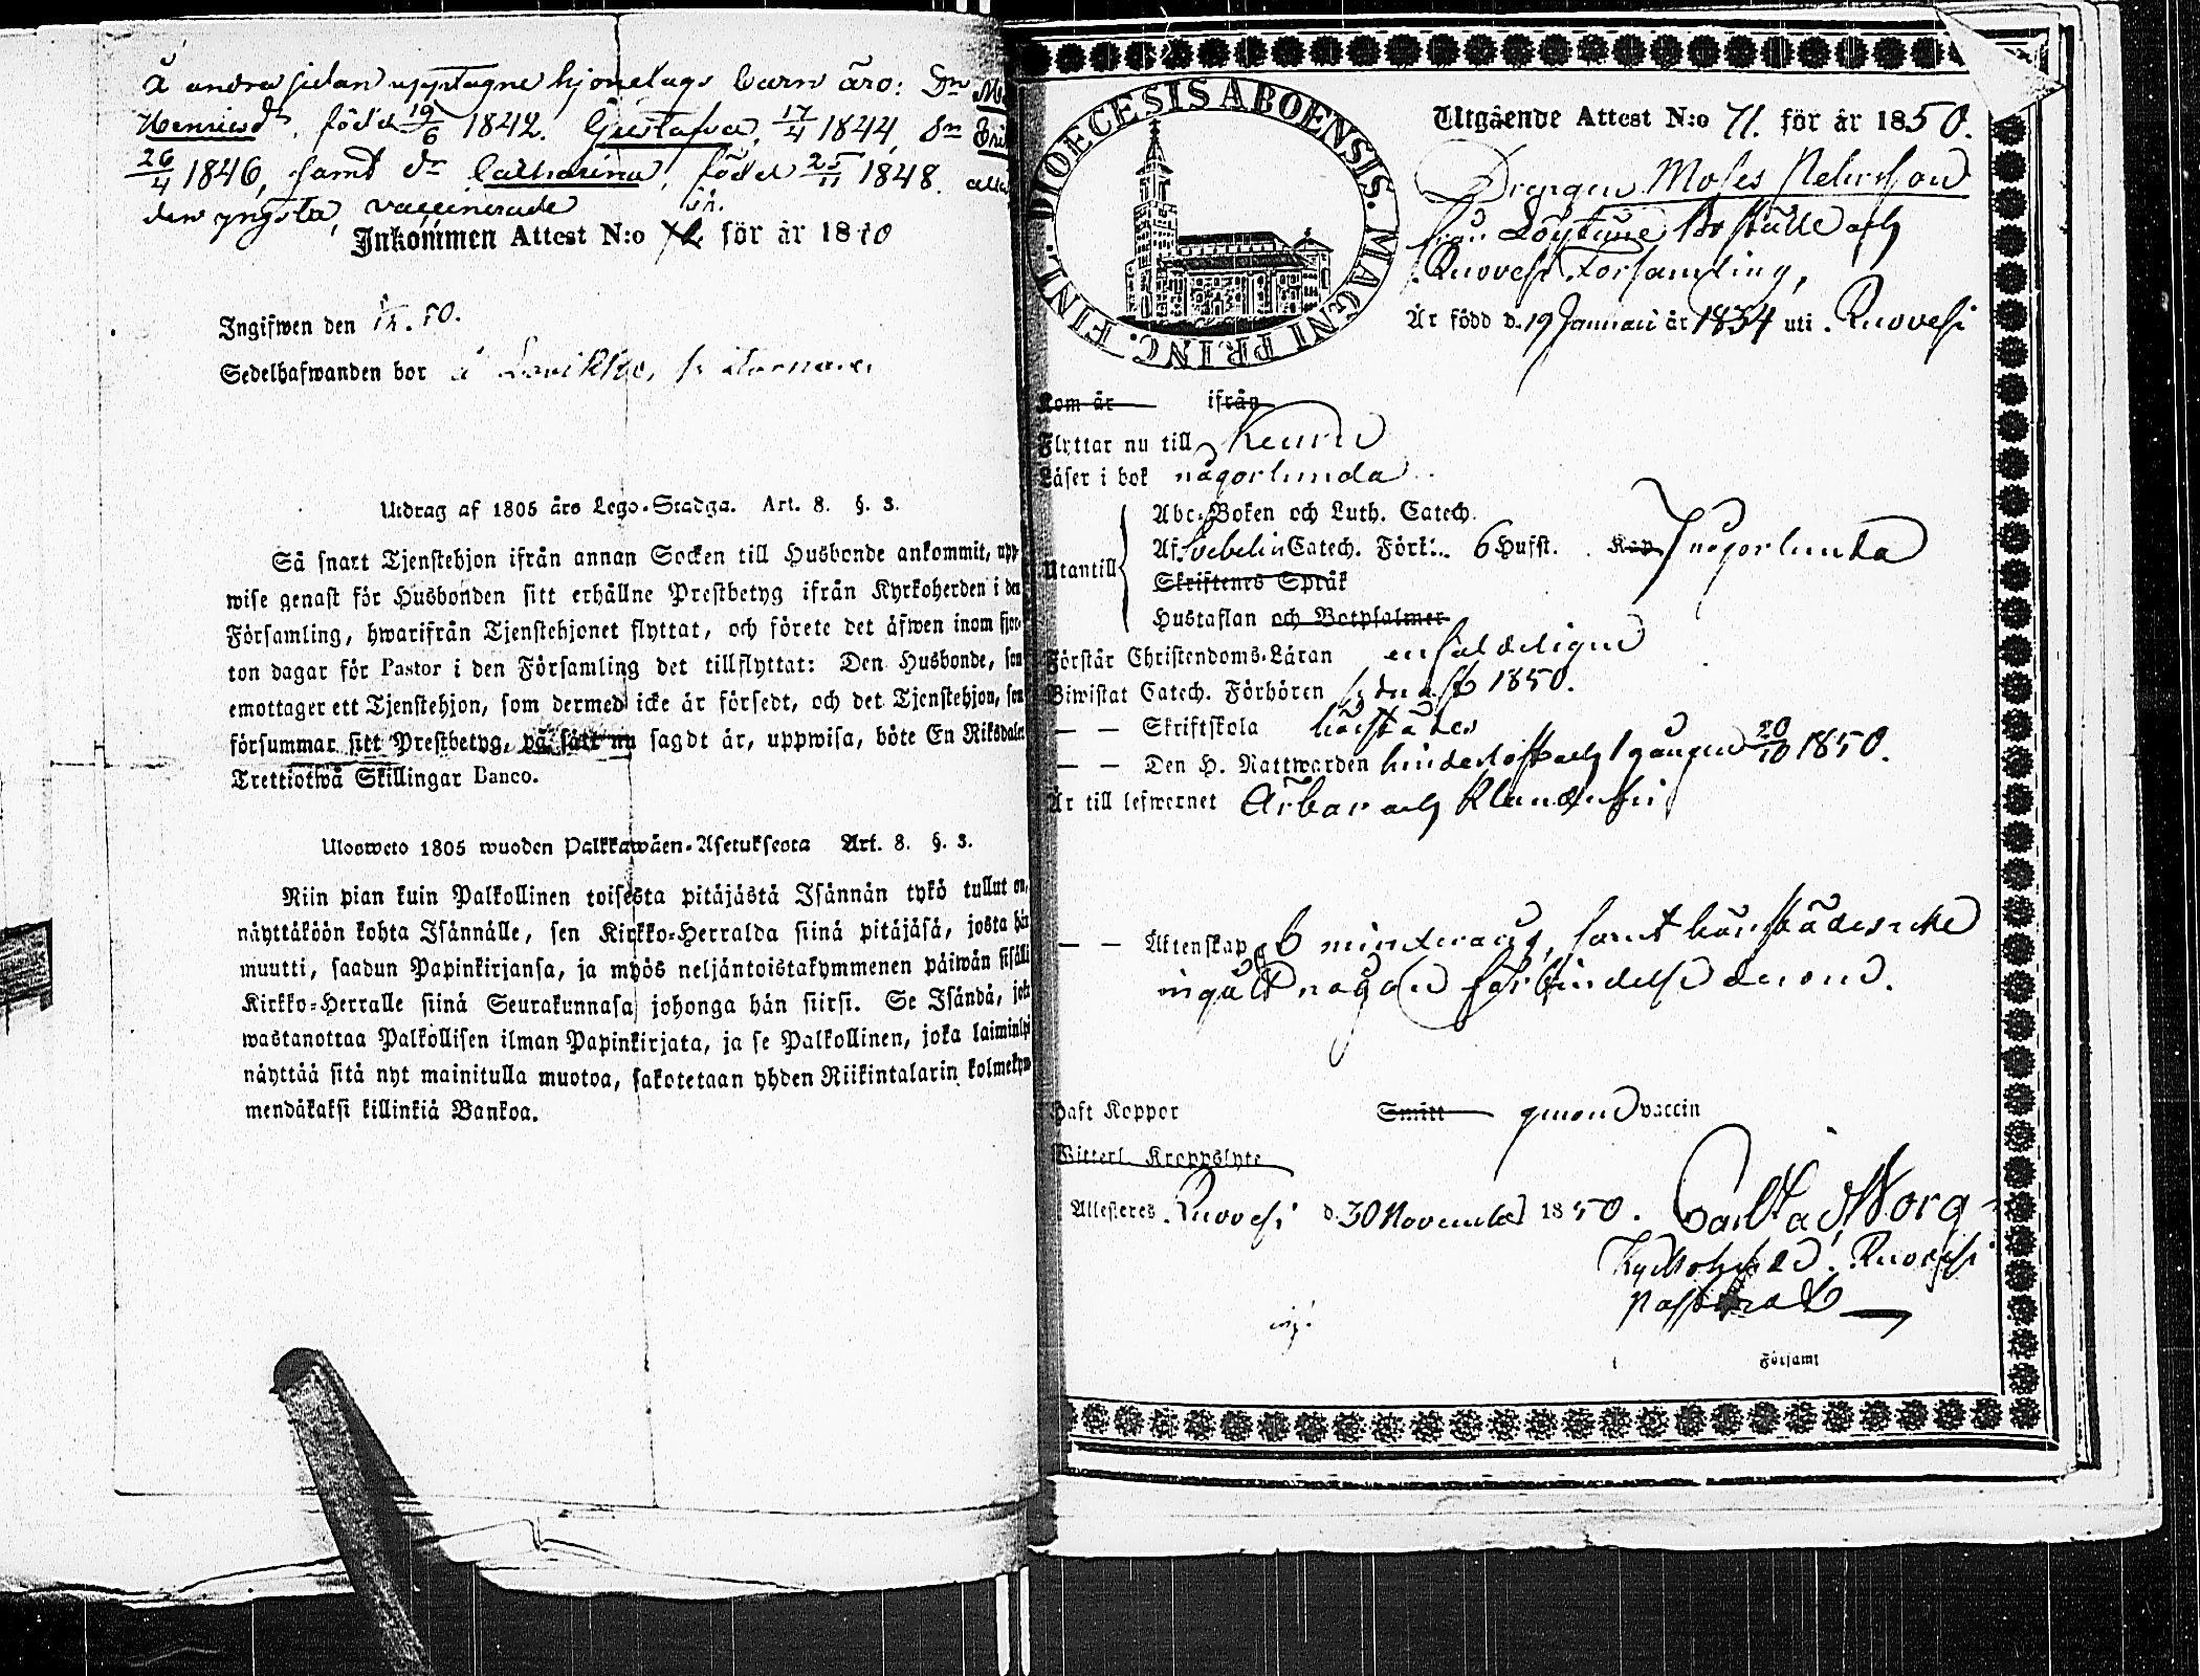 å andra sidan upptagne hjonelags barn äro: Dr
Henricsdr, född 19/6 1842. Gustafva, 17/4 1844, Sn
26/4 1846, samt dr Catharina, född 25/11 1848.
den yngsta, vaccinerade
Inkommen Attest N:o för år 18
Ingifwen den 50.
Sedelhafwanden bor å
Utdrag af 1805 års Lego-Stadga. Art. 8. §. 3.
Så snart Tjenstehjon ifrån annan Socken till Husbonde ankommit, upp-
wise genast för Husbonden sitt erhållne Prestbetyg ifrån Kyrkoherden i den
Församling, hwarifrån Tjenstehjonet flyttat, och förete det äfwen inom fjor-
ton dagar för Pastor i den Församling det tillflyttat: Den Husbonde, som
emottager ett Tjenstehjon, som dermed icke är försedt, och det Tjenstehjon, som
försummar sitt Prestbetyg, på sätt nu sagdt är, uppwisa, böte En Riksdaler
Trettiotwå Skillingar Banco.
Ulosweto 1805 wuoden Palkkawäen-Asetuksesta Art. 8. §. 3.
Niin pian kuin Palkollinen toisesta pitäjästä Isännän tykö tullut on,
näyttäköön kohta Isännälle, sen Kirkko-Herralda siinä pitäjäsä, josta hän
muutti, saadun Papinkirjansa, ja myös neljäntoistakymmenen päiwän sisällä
Kirkko-Herralle siinä Seurakunnasa johonga hän siirsi. Se Isändä, joka
wastanottaa Palkollisen ilman Papinkirjata, ja se Palkollinen, joka laiminlyö
näyttää sitä nyt mainitulla muotoa, sakotetaan yhden Riikintalarin kolmekym-
mendäkaksi killinkiä Bankoa.
DIOECESIS ABOENSIS. MAGNI PRINC. FINL.
Utgående Attest N:o 71. för år 1850.
Drengen Moses
från Böställe och
Ruovesi Församling,
Är född d. 19 Januari år 1834 uti Ruovesi
Kom år ifrån
Flyttar nu till Keuru
Läser i bok någorlunda
Utantill
Abc-Boken och Luth. Catech.
Af Svebelii Catech. Förkl. 6 Hufst. Kap. någorlunda
Skriftenes Språk
Hustaflan och Botpsalmer
Förstår Christendoms-Läran enfaldeligen
Biwistat Catech. Förhören 1850.
— — Skriftskola härstädes
— — Den H. Nattwarden hinderlöst och 1 gången 20/10 1850.
Är till lefwernet Ärbar och
— — Äktenskap minderårig, samt härstädes icke
ingått någon förbindelse derom.
Haft Koppor Smitt genom vaccin
Witterl. Kroppslyte
Attesteras Ruovesi d. 30 November 1850.
Kyrkoherde i Ruovesi
Pastorat
Församl